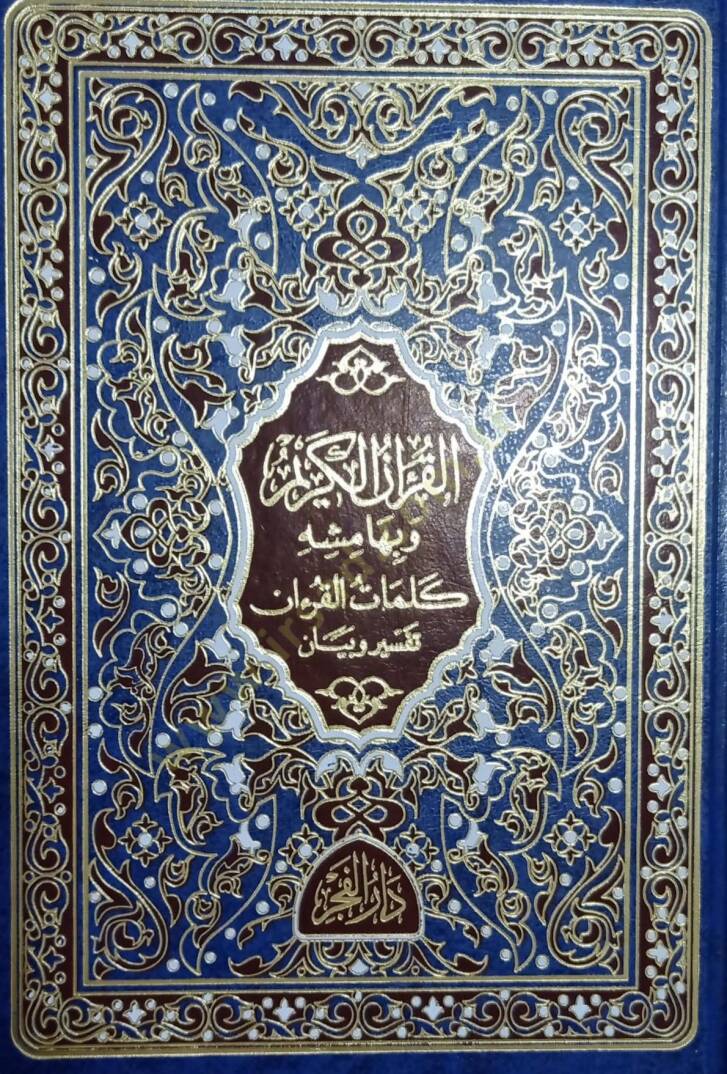 القُرْءَانُ الكَرِيْمُ
وَبِهَامِشِهِ
كَلِمَاتُ القُرْءَان
تفسِير وبَيَان
دَارُ الفَجْرِ